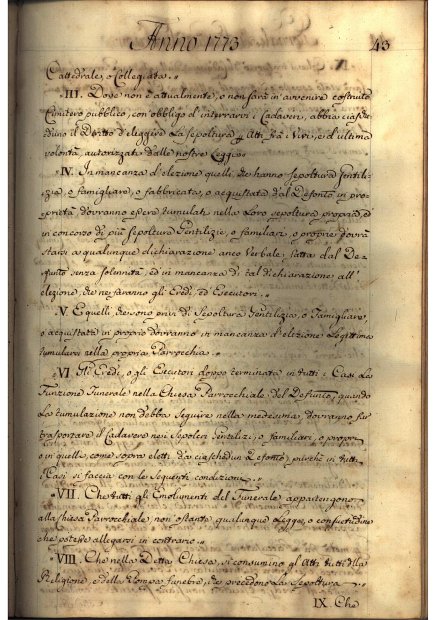 Anno 1773
43
Cattedrale, o Collegiata.
III. Dove non è attualmente, o non sarà in avvenire costruito
Cimitero pubblico, con obbligo d'interrarvi i Cadaveri, abbia ciasche
duno il Diritto d'eleggere La sepoltura Atti frà i Vivi, e d'ultima
volontà, autorizzati dalle nostre Leggi.
IV. In mancanza d'elezione quelli, che hanno sepoltura Gentili-
zia, o famigliare, o fabbricata, o acquistata dal Defonto in pro-
prietà dovranno essere tumulati nella Loro sepoltura propria, ed
in concorso di più sepolture Gentilizie, o familiari, o proprie dovrà
starsi a qualunque dichiarazione anco Verbale, fatta dal De-
funto senza solennità, ed in mancanza di tal dichiarazione all'
elezione, che ne faranno gli Eredi, ed Esecutori.
V. E quelli, che sono privi di Sepoltura Gentilizia, o Famigliare,
o acquistata in proprio dovranno in mancanza d'elezione Legittima
tumularsi nella propria Parrocchia.
VI. Gli Eredi, o gli Esecutori doppo terminata in tutti i Casi La
Funzione Funerale nella Chiesa Parrocchiale del Defunto, quando
La tumulazione non debba seguire nella medesima dovranno far
trasportare il Cadavere nei Sepolcri Gentilizi, o familiari, o propri
o in quelli, come sopra eletti da ciaschedun Defonto, purchè in tutti
i Casi si faccia con le seguenti condizioni.
VII. Che tutti gli Emolumenti del Funerale appartengono
alla Chiesa Parrocchiale, non ostante qualunque Legge, o consuetudine
che potesse allegarsi in contrario.
VIII. Che nella Detta Chiesa, si consumino gli Atti tutti della
Religione, e della Pompa funebre, che precedono La Sepoltura
IX. Che